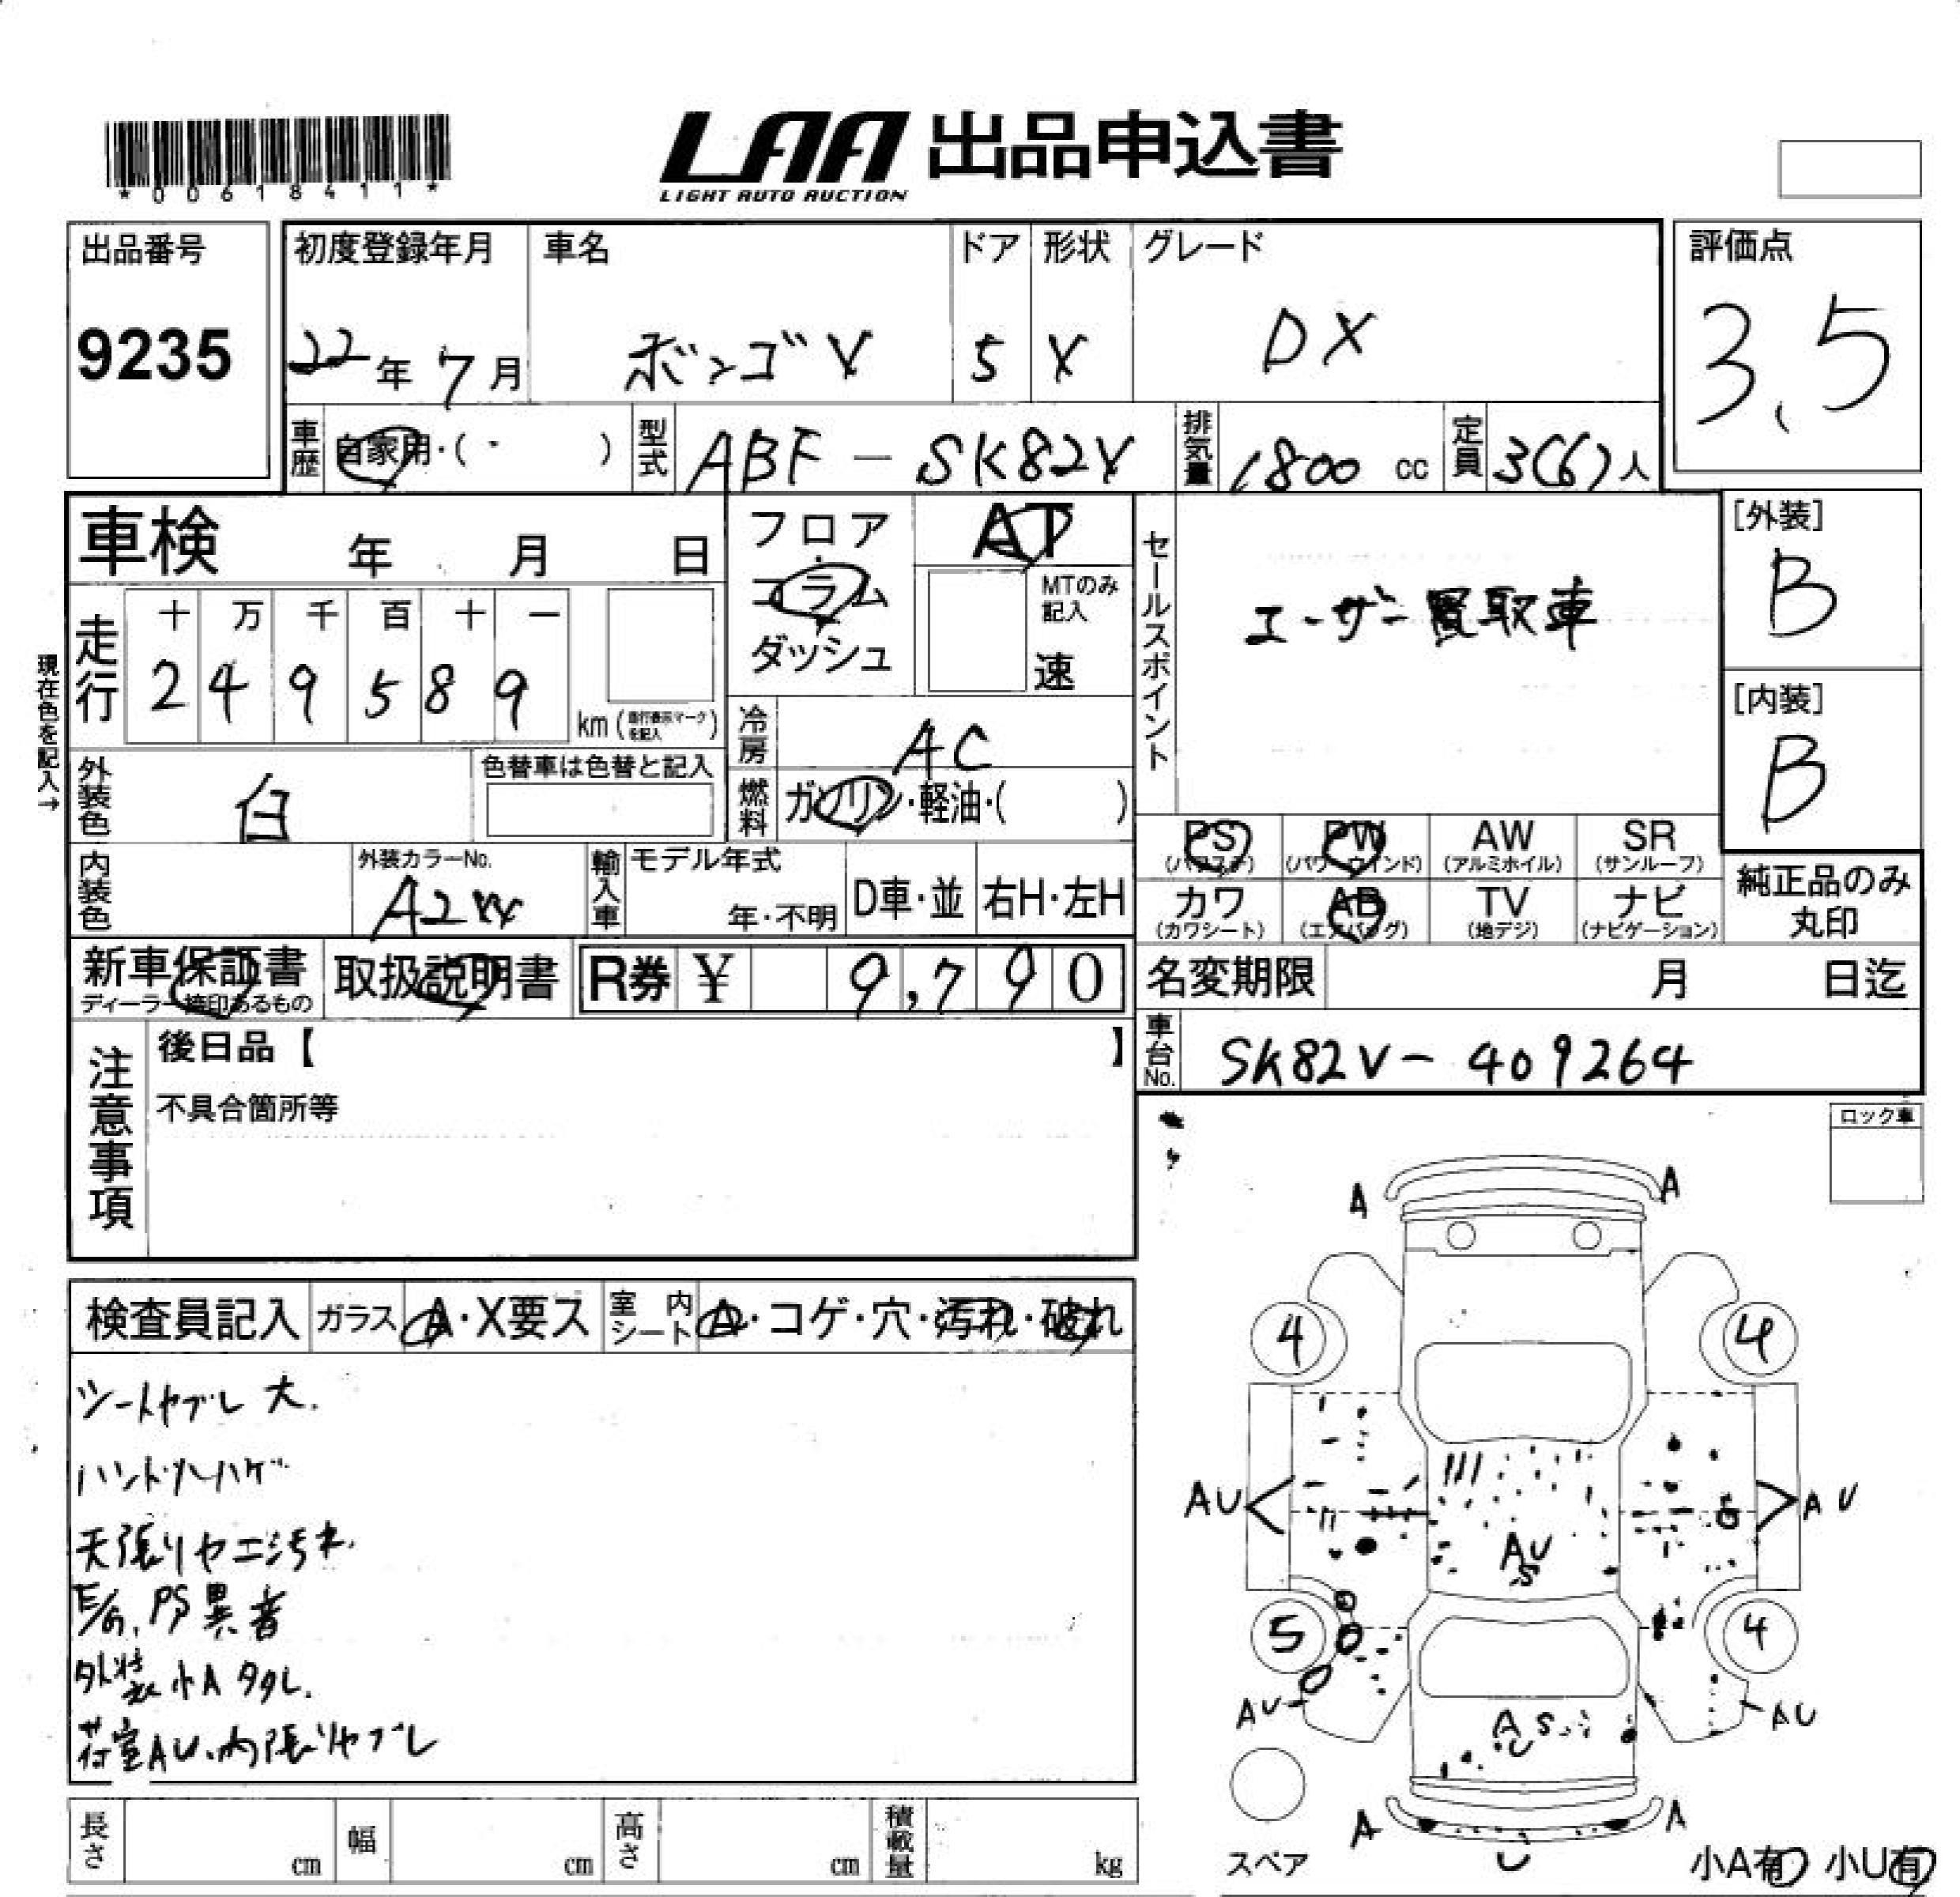 *00618411*
LAA 出品申込書
LIGHT AUTO AUCTION
出品番号
9235
初度登録年月
22年 7月
車名
ボンゴV
ドア
5
形状
V
グレード
DX
評価点
3.5
車歴
自家用・( ・ )
型式
ABF-SK82V
排気量
1800 cc
定員
3(6)人
車検 年 月 日
フロア・コラム・ダッシュ
AT
MTのみ記入
速
セールスポイント
ユーザー買取車
[外装]
B
[内装]
B
現在色を記入→
走行
十 万 千 百 十 一
2 4 9 5 8 9
km (走行表示マークを記入)
冷房
AC
外装色
白
色替車は色替と記入
燃料
ガソリン・軽油・( )
PS (パワステ)
PW (パワーウインド)
AW (アルミホイル)
SR (サンルーフ)
内装色
外装カラーNo.
A2W
輸入車
モデル年式
年・不明
D車・並
右H・左H
カワ (カワシート)
AB (エアバッグ)
TV (地デジ)
ナビ (ナビゲーション)
純正品のみ
丸印
新車保証書
ディーラー捺印あるもの
取扱説明書
R券 ¥ 9,790
名変期限 月 日迄
車台No.
SK82V-409264
注意事項
後日品【 】
不具合箇所等
ロック車
検査員記入
ガラス
A・X要ス
室内シート
A・コゲ・穴・汚れ・破れ
シートヤブレ 大.
ハンドルハゲ
天張りヤニ汚れ.
E/G, PS異音
外装小AタタL.
荷室AU.内張りヤブレ
A
A
4
4
AU
AU
AU
S
5
4
AU
AU
A S
U
A
A
U
スペア
小A有 小U有
長さ cm
幅 cm
高さ cm
積載量 kg